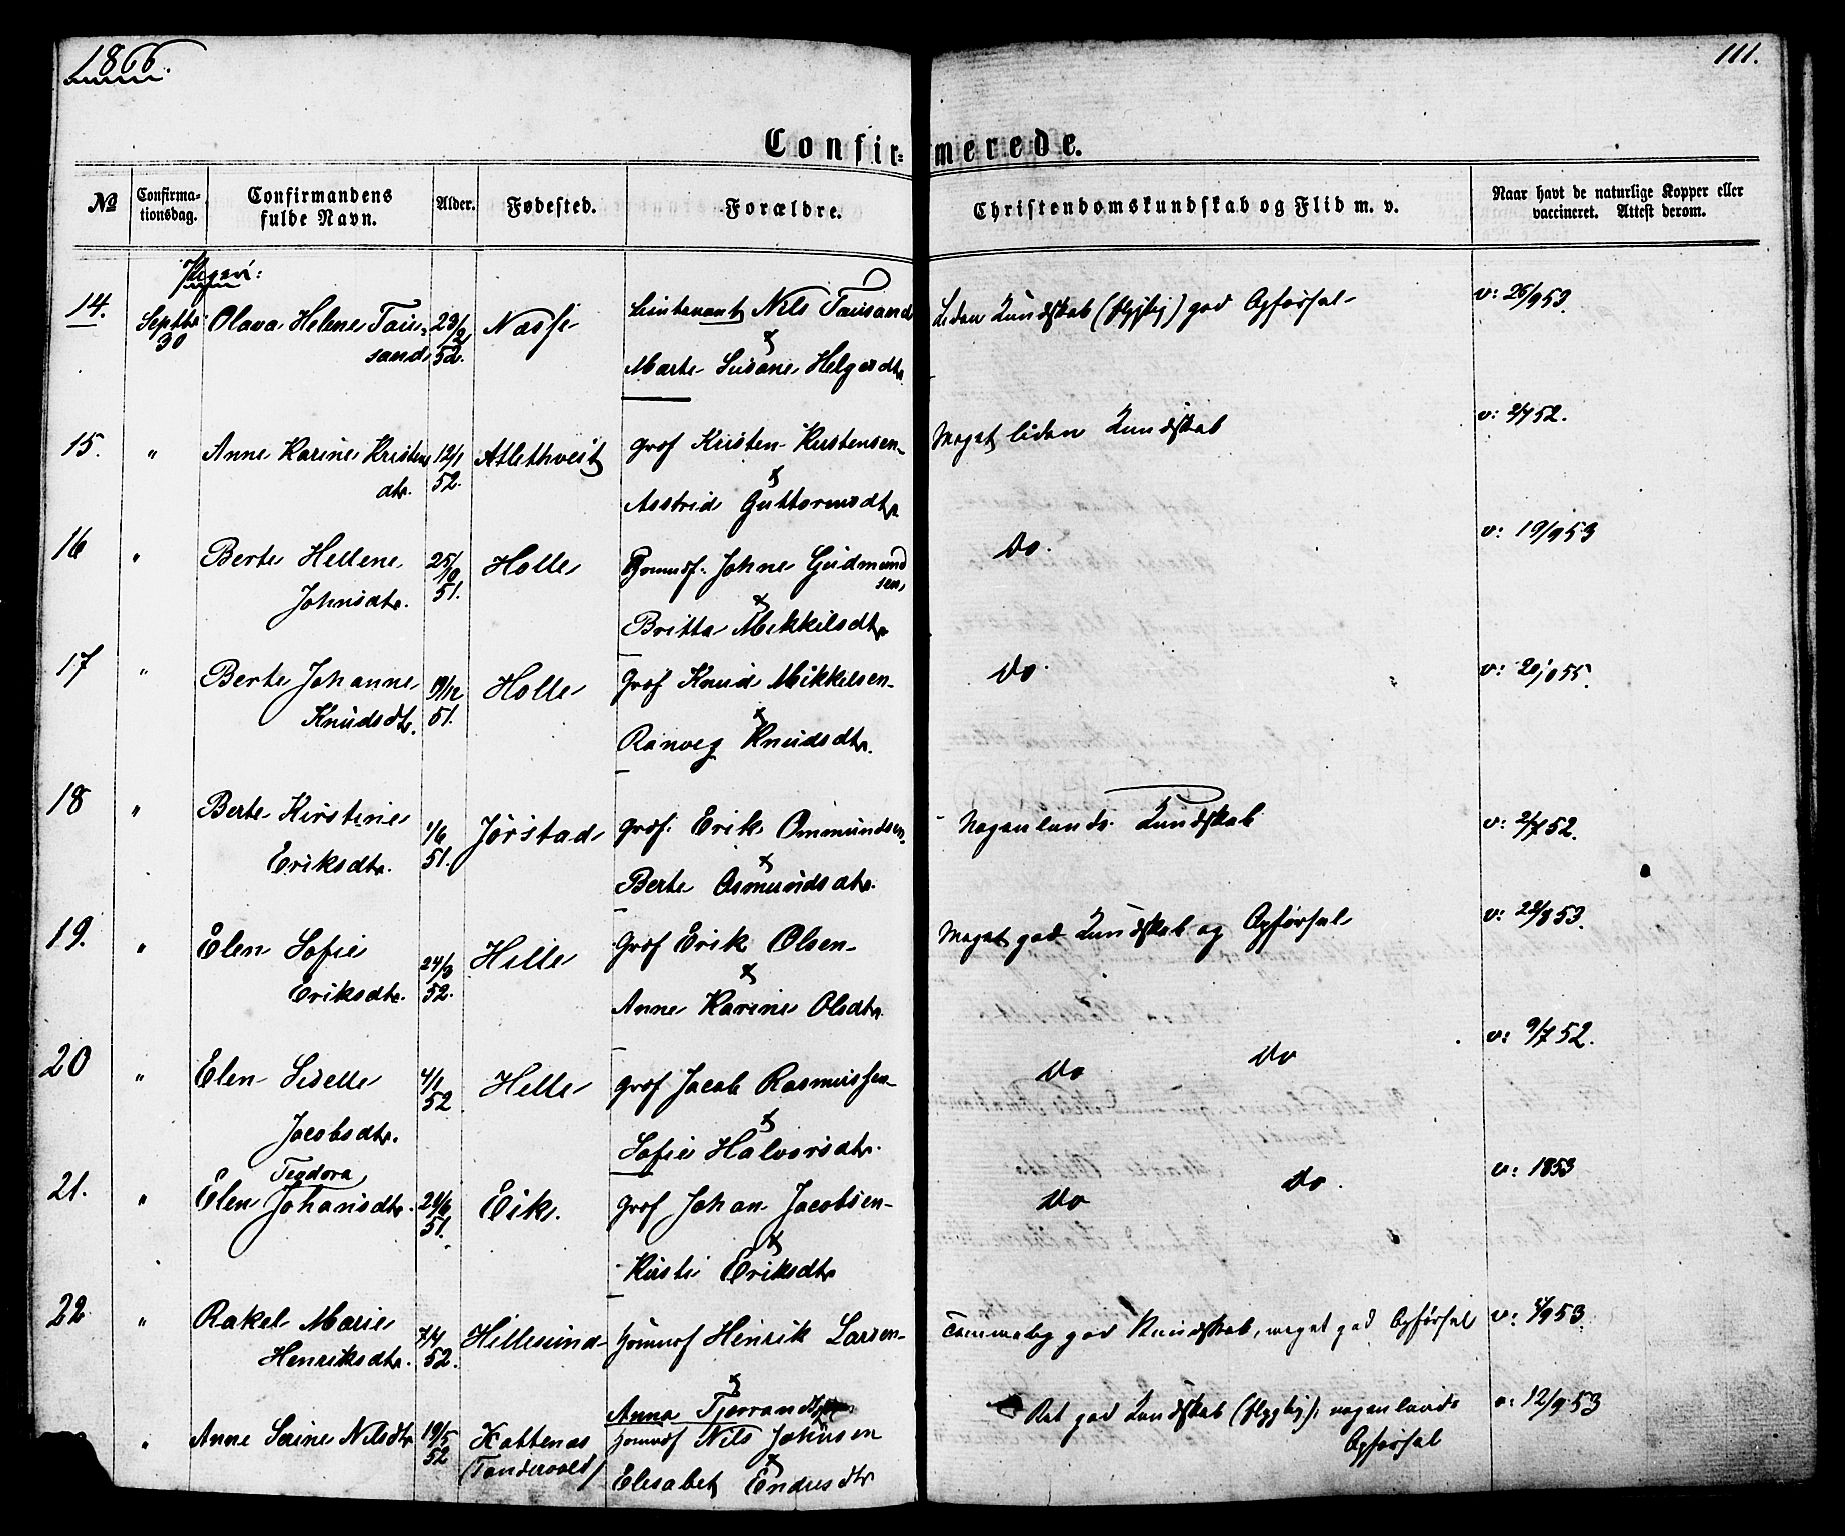 1866.
111.
Confirmerede.
No
Confirmationsdag.
Confirmandens fulde Navn.
Alder.
Fødested.
Forældre.
Christendomskundskab og Flid m. v.
Naar havt de naturlige Kopper eller vaccineret. Attest derom.
Piger:
14. Septbr 30 Olava Helene Tausand 52. Næsse Lieutenant Nils Tausand Liden Kundskab (flystig) god Opførsel v: 26/9 53.
Marte Susane Helgesdtr
15. " Anne Karine Kristensdtr. 12/1 52. Atlethveit Grdf Kristen Kristensen Meget liden Kundskab v: 2/7 52.
Asstrid Guttormsdtr
16 " Berte Hellene Johnsdtr. 25/10 51. Holle Johne Gudmundsen Do. v: 19/9 53
Britta Mikkilsdtr
17 " Berte Johanne Knudsdtr. 19/12 51. Holle Grdf Knud Mikkelsen Do
Ranveg Knudsdtr.
18 " Berte Kirstine Eriksdtr. 1/6 51. Jørstad Grdf. Erik Ommundsen Nogenlunde Kundskab v: 2/7 52.
Berte Osmundsdtr.
19. " Elen Sofie Eriksdtr. 24/3 52. Helle Grdf Erik Olsen Meget god Kundskab og Opførsel v: 28/8 53.
Anne Karine Olsdtr
20 " Elen Sidelle Jacobsdtr. 4/1 52 Helle Grdf Jacob Rasmussen Do Do v: 9/7 52.
Sofie Halvorsdtr.
21. " Elen Teodora Johansdtr. 24/6 51. Eik. Grdf Johan Jacobsen Do Do. v: 1853
Kirsti Eriksdtr
22 " Rakel Marie Henriksdtr. 7/4 52. Hillesund Henrik Larsen Temmelig god Kundskab, meget god Opførsel
Anna
" Anne Serine Nilsdtr 19/5 52 Kattenæs Nils Johnsen Ret god Kundskab nogenlunde Opførsel v: 12/9 53
Elisabet Endresdtr